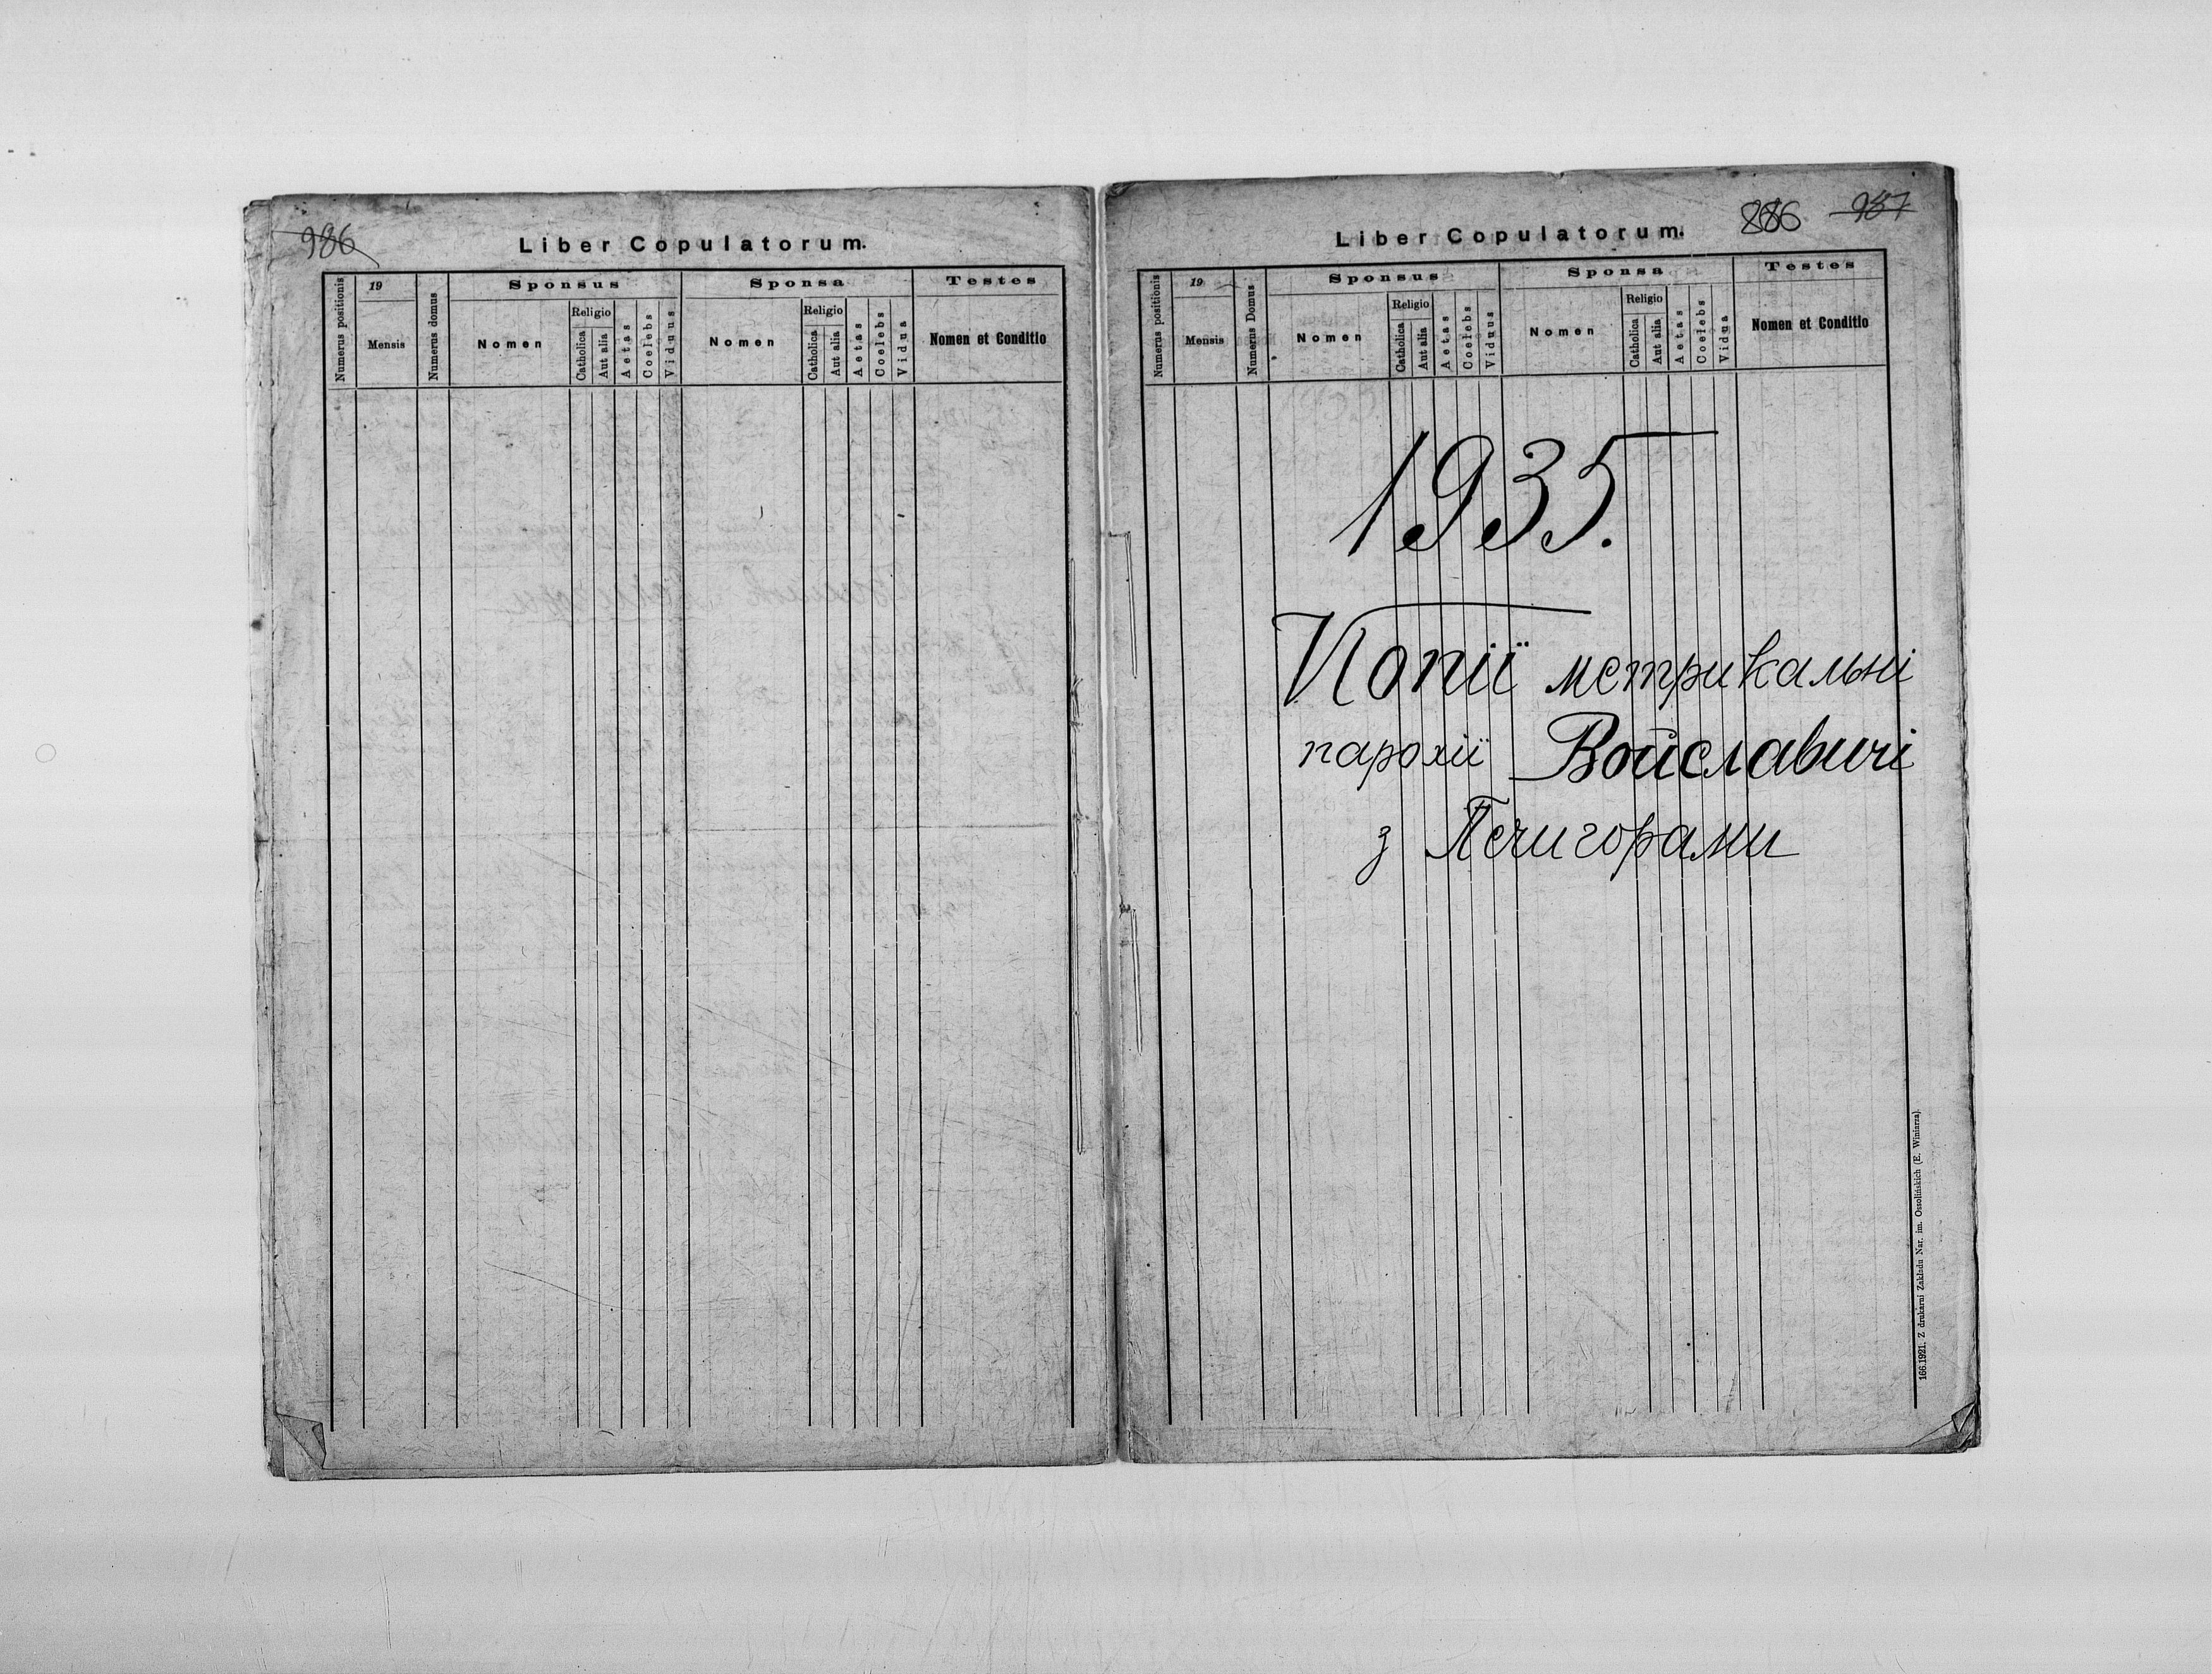 986
Liber Copulatorum.
Numerus positionis
19
Mensis
Numerus domus
Sponsus
Nomen
Religio
Catholica
Aut alia
Aetas
Coelebs
Viduus
Sponsa
Nomen
Religio
Catholica
Aut alia
Aetas
Coelebs
Vidua
Testes
Nomen et Conditio
886 987
Liber Copulatorum.
Numerus positionis
19
Mensis
Numerus Domus
Sponsus
Nomen
Religio
Catholica
Aut alia
Aetas
Coelebs
Viduus
Sponsa
Nomen
Religio
Catholica
Aut alia
Aetas
Coelebs
Vidua
Testes
Nomen et Conditio
1935.
Копії метрикальні
парохії Войславичі
з Печигорами
166.1921. Z drukarni Zakładu Nar. im. Ossolińskich (E. Winiarza).